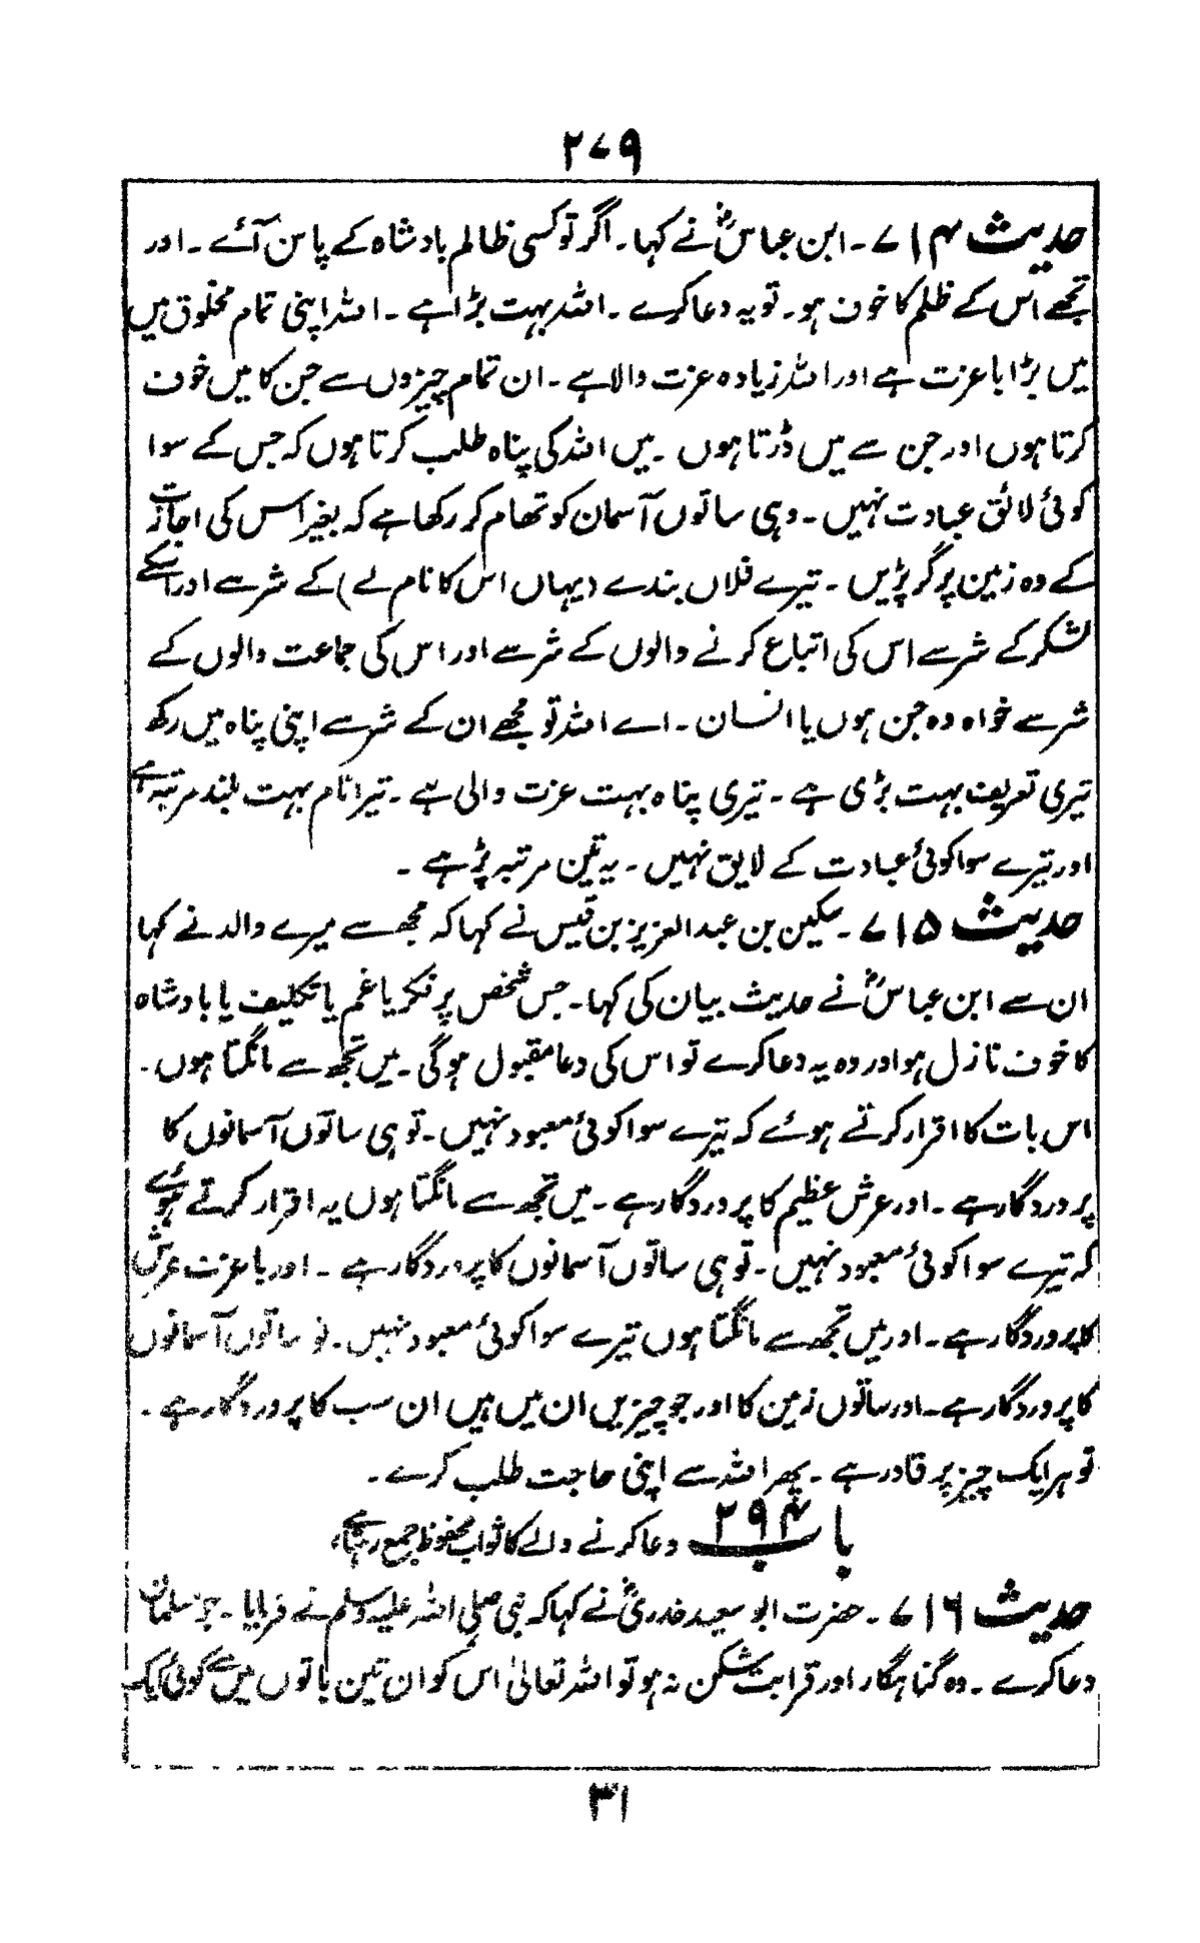 ۲۷۹
حدیث ۷۱۴ ۔ ابن عباسؓ نے کہا ۔ اگر تو کسی ظالم بادشاہ کے پاس آئے ۔ اور
تجھے اس کے ظلم کا خوف ہو ۔ تو یہ دعا کرے ۔ اللہ بہت بڑا ہے ۔ اللہ اپنی تمام مخلوق میں
میں بڑا باعزت ہے اور اللہ زیادہ عزت والا ہے ۔ ان تمام چیزوں سے جن کا میں خوف
کرتا ہوں اور جن سے میں ڈرتا ہوں ۔ میں اللہ کی پناہ طلب کرتا ہوں کہ جس کے سوا
کوئی لائق عبادت نہیں ۔ وہی ساتوں آسمان کو تھام کر رکھا ہے کہ بغیر اس کی اجازت
کے وہ زمین پر گر پڑیں ۔ تیرے فلاں بندے (یہاں اس کا نام لے) کے شر سے اور اسکے
لشکر کے شر سے اس کی اتباع کرنے والوں کے شر سے اور اس کی جماعت والوں کے
شر سے خواہ وہ جن ہوں یا انسان ۔ اے اللہ تو مجھے ان کے شر سے اپنی پناہ میں رکھ
تیری تعریف بہت بڑی ہے ۔ تیری پناہ بہت عزت والی ہے ۔ تیرا نام بہت بلند مرتبہ ہے
اور تیرے سوا کوئی عبادت کے لایق نہیں ۔ یہ تین مرتبہ پڑہے ۔
حدیث ۷۱۵ ۔ سکین بن عبدالعزیز بن قیس نے کہا کہ مجھ سے میرے والد نے کہا
ان سے ابن عباسؓ نے حدیث بیان کی کہا ۔ جس شخص پر فکر یا غم یا تکلیف یا بادشاہ
کا خوف نازل ہو اور وہ یہ دعا کرے تو اس کی دعا مقبول ہوگی ۔ میں تجھ سے مانگتا ہوں ۔
اس بات کا اقرار کرتے ہوئے کہ تیرے سوا کوئی معبود نہیں ۔ تو ہی ساتوں آسمانوں کا
پروردگار ہے ۔ اور عرش عظیم کا پروردگار ہے ۔ میں تجھ سے مانگتا ہوں یہ اقرار کرتے ہوئے
کہ تیرے سوا کوئی معبود نہیں ۔ تو ہی ساتوں آسمانوں کا پروردگار ہے ۔ اور با عزت عرش
کا پروردگار ہے ۔ اور میں تجھ سے مانگتا ہوں تیرے سوا کوئی معبود نہیں ۔ تو ساتوں آسمانوں
کا پروردگار ہے ۔ اور ساتوں زمین کا اور جو چیزیں ان میں ہیں ان سب کا پروردگار ہے ۔
تو ہر ایک چیز پر قادر ہے ۔ پھر اللہ سے اپنی حاجت طلب کرے ۔
باب ۲۹۴ دعا کرنے والے کا ثواب محفوظ جمع رہتا ہے ،
حدیث ۷۱۶ ۔ حضرت ابو سعید خدریؓ نے کہا کہ نبی صلی اللہ علیہ وسلم نے فرمایا ۔ جو مسلمان
دعا کرے ۔ وہ گناہگار اور قرابت شکن نہ ہو تو اللہ تعالیٰ اس کو ان تین باتوں میں سے کوئی ایک
۳۱